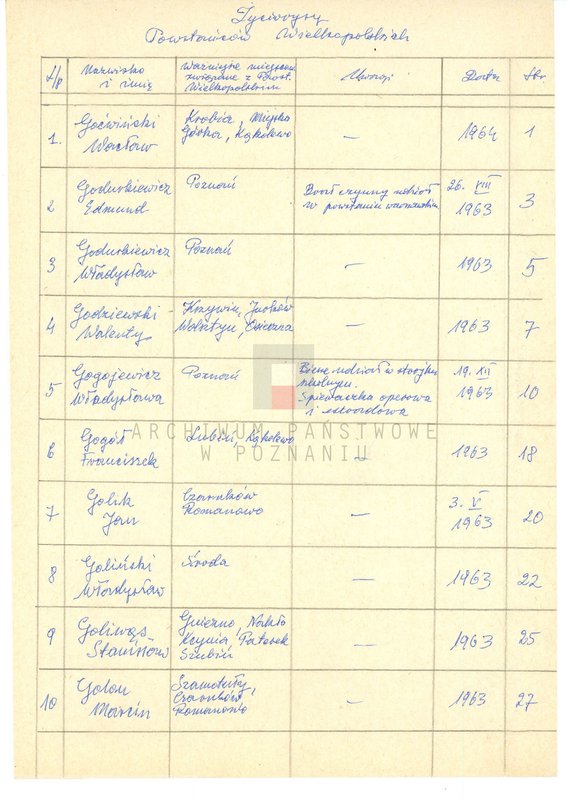 Życiorysy
Powstańców Wielkopolskich
L/p
Nazwisko
i imię
Ważniejsze miejscow.
związane z Powst.
Wielkopolskim
Uwagi
Data
Str.
1.
Goćwiński
Wacław
Krobia, Miejska
Górka, Kąkolewo
—
1964
1
2
Godurkiewicz
Edmund
Poznań
Brał czynny udział
w powstaniu warszawskim
26. XIII
1963
3
3
Godurkiewicz
Władysław
Poznań
—
1963
5
4
Godziewski
Walenty
Krzywiń,
Osieczna
—
1963
7
5
Gogojewicz
Władysława
Poznań
Bierze udział w strajku
szkolnym.
Śpiewaczka operowa
i estradowa
19. XII
1963
10
6
Gogół
Franciszek
Lubiń, Kąkolewo
—
1963
18
7
Golik
Jan
Czarnków
Romanowo
—
3. V
1963
20
8
Goliński
Władysław
Środa
—
1963
22
9
Goliwąs
Stanisław
Gniezno, Nakło
Kcynia, Paterek
Szubin
—
1963
25
10
Golon
Marcin
Szamotuły,
Czarnków
Romanowo
—
1963
27
ARCHIWUM PAŃSTWOWE
W POZNANIU